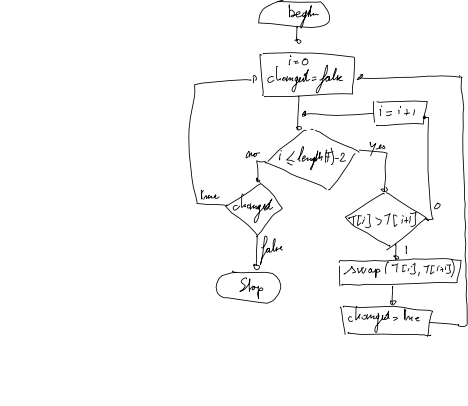 begin
i=0
changed=false
i=i+1
i≤length(T)-2
no
yes
true
changed
T[i]>T[i+1]
0
false
1
Stop
swap(T[i],T[i+1])
changed=true